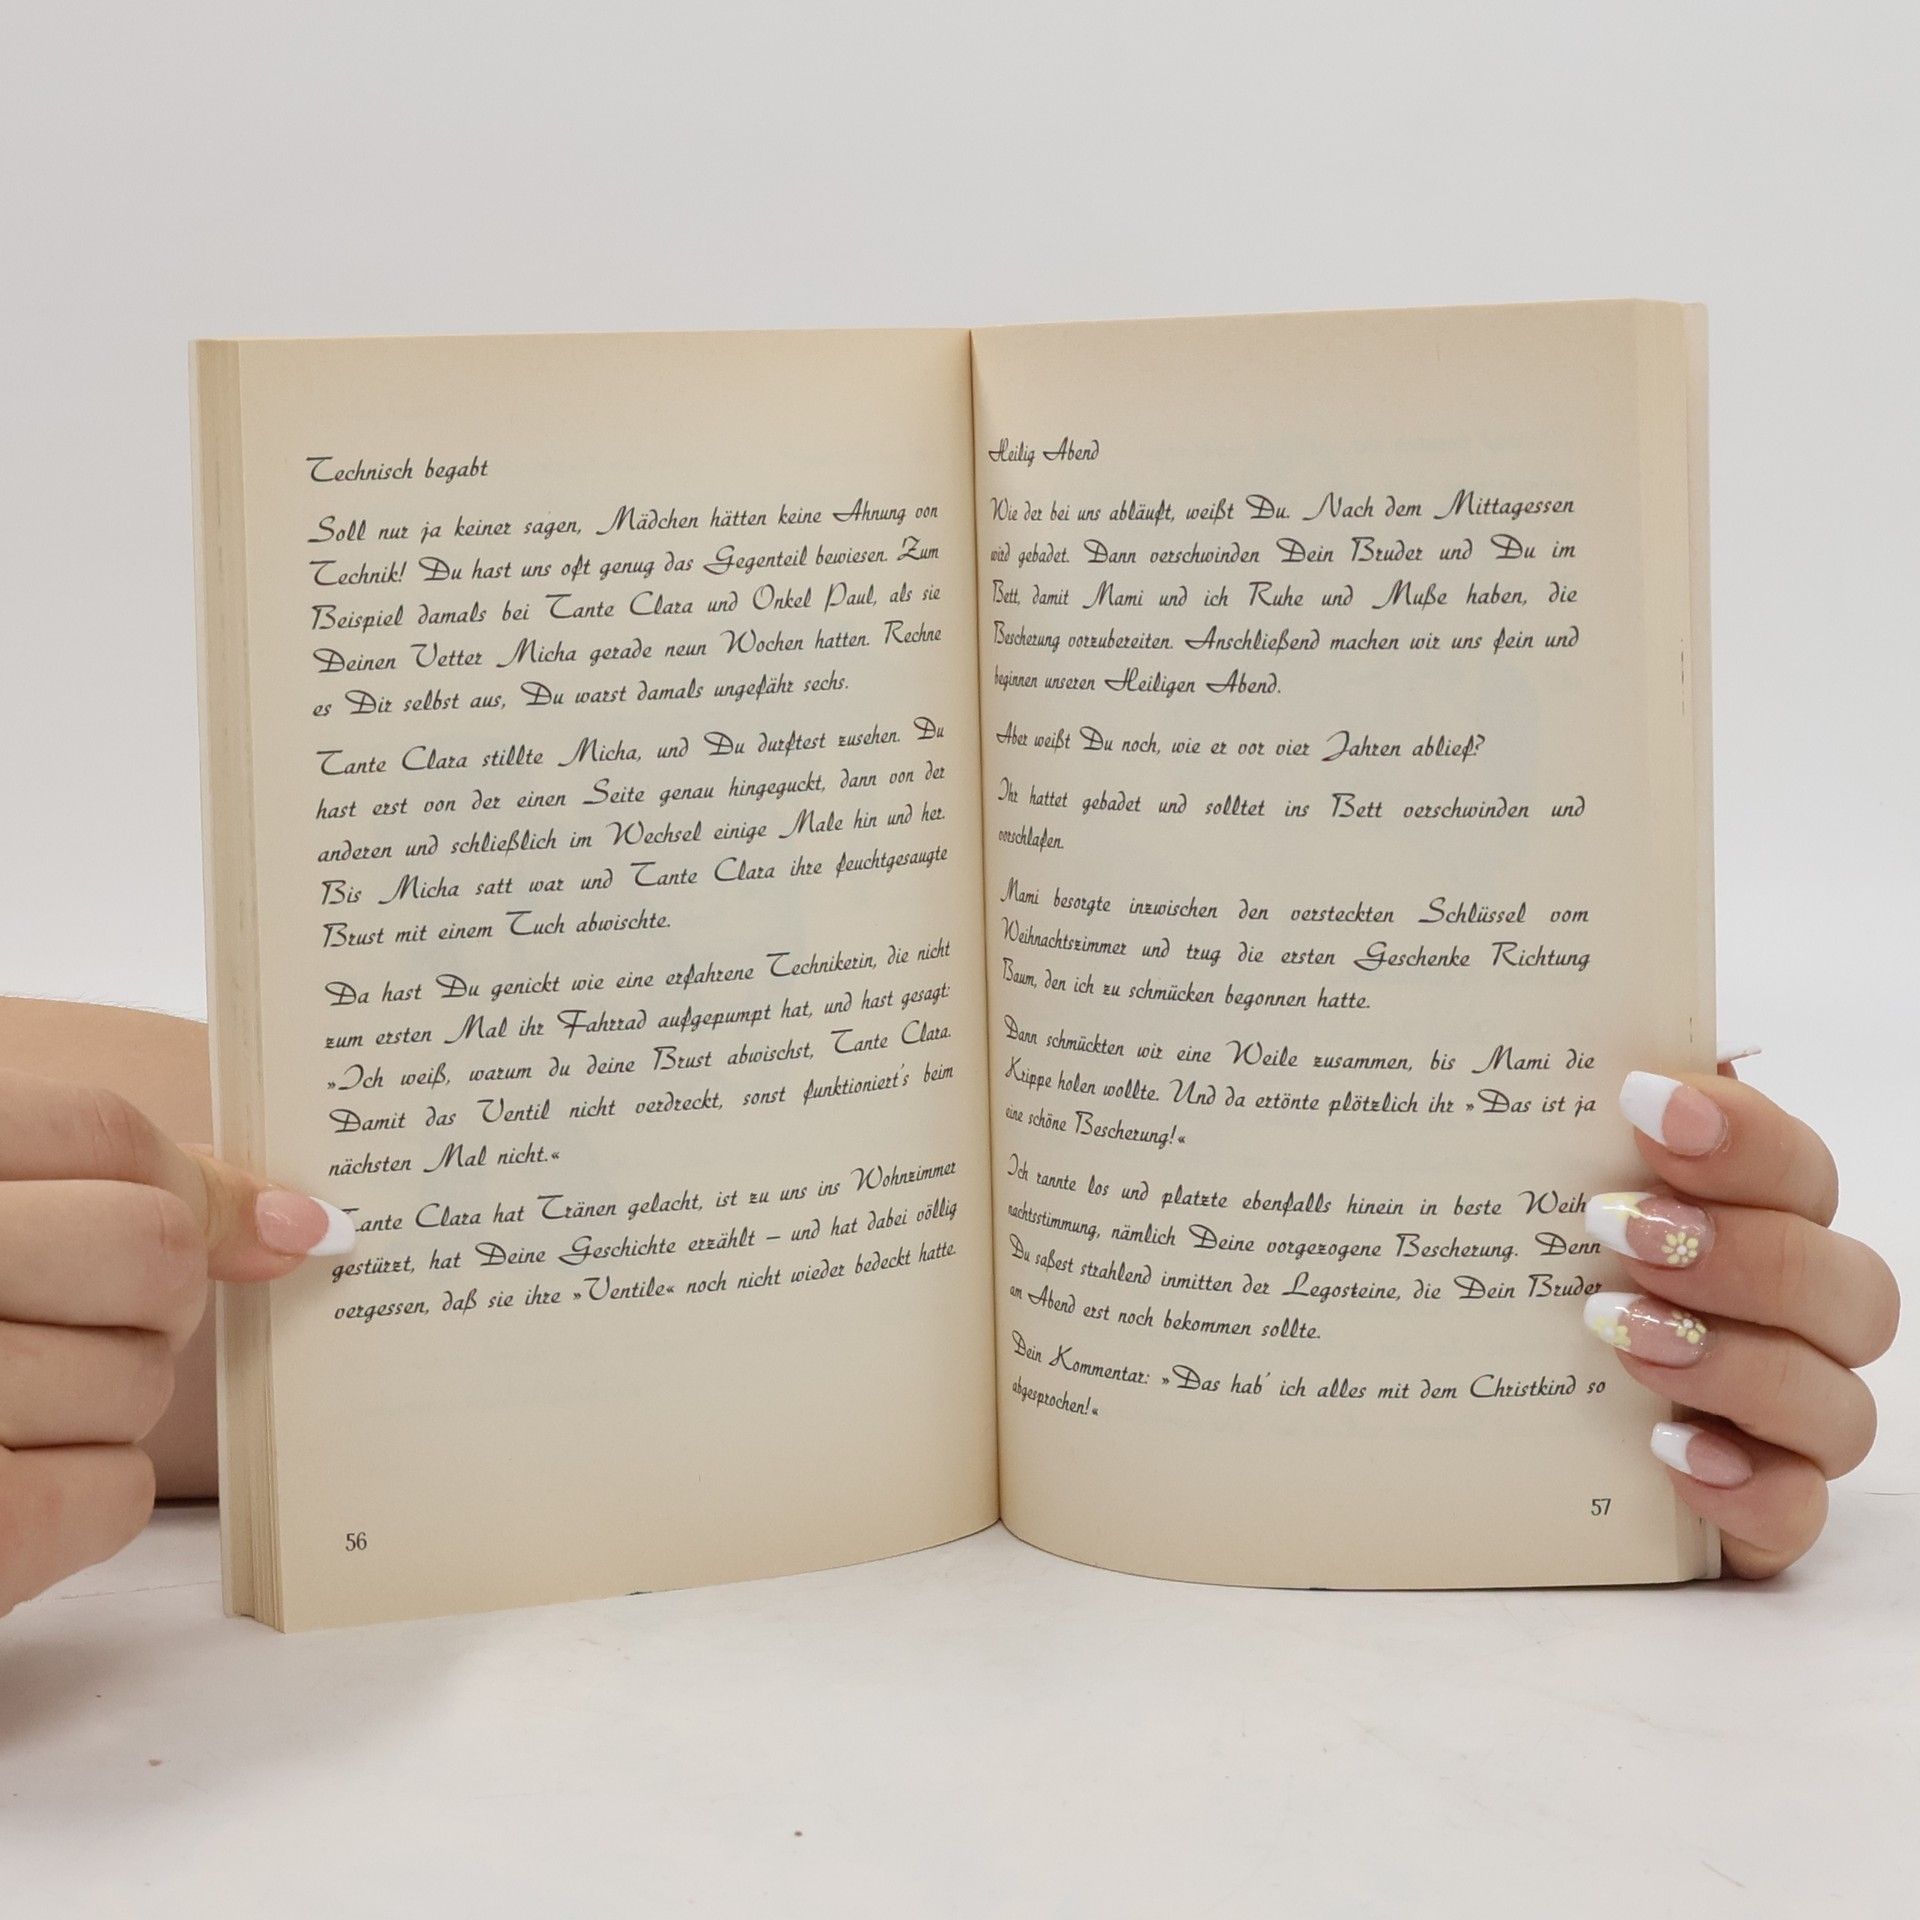 Technisch begabt
Soll nur ja keiner sagen, Mädchen hätten keine Ahnung von
Technik! Du hast uns oft genug das Gegenteil bewiesen. Zum
Beispiel damals bei Tante Clara und Onkel Paul, als sie
Deinen Vetter Micha gerade neun Wochen hatten. Rechne
es Dir selbst aus, Du warst damals ungefähr sechs.
Tante Clara stillte Micha, und Du durftest zusehen. Du
hast erst von der einen Seite genau hingeguckt, dann von der
anderen und schließlich im Wechsel einige Male hin und her.
Bis Micha satt war und Tante Clara ihre feuchtgesaugte
Brust mit einem Tuch abwischte.
Da hast Du genickt wie eine erfahrene Technikerin, die nicht
zum ersten Mal ihr Fahrrad aufgepumpt hat, und hast gesagt:
»Ich weiß, warum du deine Brust abwischst, Tante Clara.
Damit das Ventil nicht verdreckt, sonst funktioniert's beim
nächsten Mal nicht.«
Tante Clara hat Tränen gelacht, ist zu uns ins Wohnzimmer
gestürzt, hat Deine Geschichte erzählt – und hat dabei völlig
vergessen, daß sie ihre »Ventile« noch nicht wieder bedeckt hatte.
56
Heilig Abend
Wie der bei uns abläuft, weißt Du. Nach dem Mittagessen
wird gebadet. Dann verschwinden Dein Bruder und Du im
Bett, damit Mami und ich Ruhe und Muße haben, die
Bescherung vorzubereiten. Anschließend machen wir uns fein und
beginnen unseren Heiligen Abend.
Aber weißt Du noch, wie er vor vier Jahren ablief?
Ihr hattet gebadet und solltet ins Bett verschwinden und
vorschlafen.
Mami besorgte inzwischen den versteckten Schlüssel vom
Weihnachtszimmer und trug die ersten Geschenke Richtung
Baum, den ich zu schmücken begonnen hatte.
Dann schmückten wir eine Weile zusammen, bis Mami die
Krippe holen wollte. Und da ertönte plötzlich ihr »Das ist ja
eine schöne Bescherung!«
Ich rannte los und platzte ebenfalls hinein in beste Weih-
nachtsstimmung, nämlich Deine vorgezogene Bescherung. Denn
Du saßest strahlend inmitten der Legosteine, die Dein Bruder
am Abend erst noch bekommen sollte.
Dein Kommentar: »Das hab' ich alles mit dem Christkind so
abgesprochen!«
57